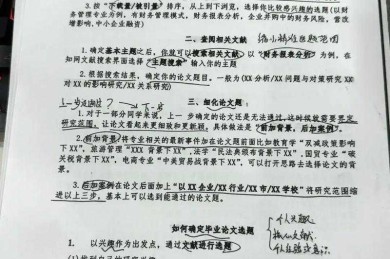 3. 按“下载量/被引量”排序，从上到下浏览，选择你比较感兴趣的选题(以财
务管理专业为例，有财务管理模式，财务报表分析，企业并购中的财务风险，营改
增影响，中小企业融资)
二、查阅相关文献
1. 确定基本主题之后，你就可以搜索相关文献，以“财务报表分析”为例，在
知网文献搜索界面选择“主题搜索”输入你的主题
2. 根据搜索结果，确定你的论文题目，一般为(XX 分析/XX 问题与对策研究
对 XX 的影响研究/XX 关系研究)
三、细化论文题:
1. 对于一部分同学来说，上一步确定的论文还是无法通过，这时候就需要界定
研究范围，让论文看起来更细致和更新颖，具体做法是“前加背景，后加案例”。
2. 前加背景/将专业相关的最新事件加在论文题前面比如教育学“双减政策影响
下 XX”，旅游管理“XXX 背景下 XX”，法学“民法典颁布背景下 XX”，国贸专业“碳
关税背景下 XX”，电商专业“中美贸易战背景下 XX”，可以打开思路去选择论文的背
景。
3. 后加案例在论文后面加上“以 XX 企业/XX 行业/XX 市/XX 学校”将研究范围缩
进以上三步，基本上可以选到能通过的论文题。
如何确定毕业论文选题
1. 以兴趣作为出发点，通过文献进行选题